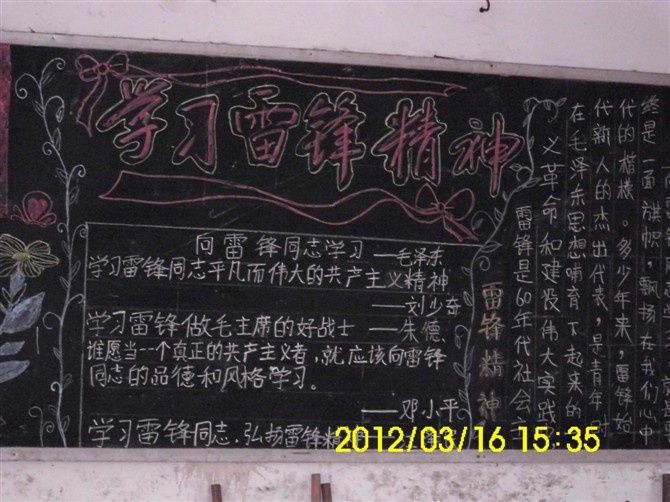 学习雷锋精神
向雷锋同志学习 —毛泽东
学习雷锋同志平凡而伟大的共产主义精神
——刘少奇
学习雷锋做毛主席的好战士 —朱德
谁愿当一个真正的共产主义者，就应该向雷锋
同志的品德和风格学习。
——邓小平
学习雷锋同志，弘扬雷锋精
雷锋精神
雷锋是60年代社会
义革命和建设伟大实践
在毛泽东思想哺育下起来的
代新人的杰出代表，是青年时
代的楷模。多少年来，雷锋始
终是一面旗帜，飘扬在我们心中
2012/03/16 15:35